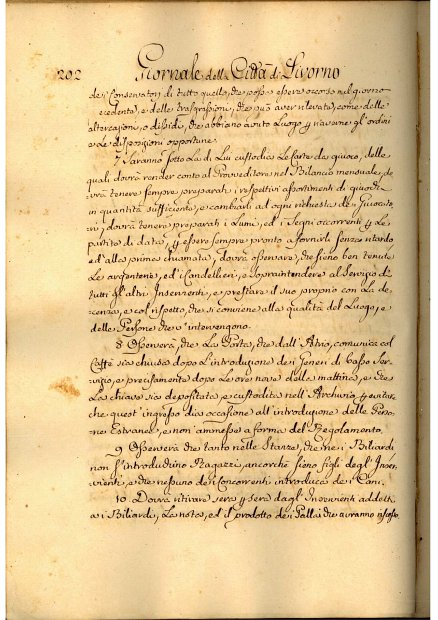 202 Giornale della Città di Livorno
dei Conservatori di tutto quello, che possa essere occorso nel giorno
cedente, e delle trasgressioni, che può aver rilevate, come delle
altercazioni, o dissidj, che abbiano avuto Luogo p riceverne gl'ordini
e Le disposizioni opportune.
7. Saranno sotto La di Lui custodia Le Carte da giuoco, delle
quali dovrà render conto al Provveditore nel Bilancio mensuale, do
vrà tenere sempre preparati i respettivi assortimenti di giuochi
in quantità sufficiente, e cambiarli ad ogni richiesta dei Giuocato
ri, dovrà tenere preparati i Lumi, ed i Segni occorrenti p Le
partite di data, p essere sempre pronto a fornirli senza ritardo
ed alla prima chiamata, dovrà osservare, che sieno ben tenute
Le argenterie, ed i Candellieri, e soprintendere al Servizio di
tutti gl'altri Inservienti, e prestare il suo proprio con La de
cenza, e col rispetto, che si conviene alla qualità del Luogo, e
delle Persone che v'intervengono.
8 Osserverà, che La Porta, che dall'Atrio, comunica col
Caffè sia chiusa dopo L'introduzione dei Generi di basso Ser
vizio, e precisamente dopo Le ore nove della mattina, e che
La chiave sia depositata, e custodita nell'Archivio p evitare
che quest'ingresso dia occasione all'introduzione delle Perso
ne Estranee, e non ammesse a forma del Regolamento.
9 Osserverà che tanto nelle Stanze, che nei Biliardi
non s'introduchino Ragazzi, ancorchè sieno figli degl'Inser
vienti, e che nessuno dei Concorrenti introduca dei Cani.
10. Dovrà ritirare sera p sera dagl'Inservienti addetti
ai Biliardi, La nota, ed il prodotto dei Pallai che avranno